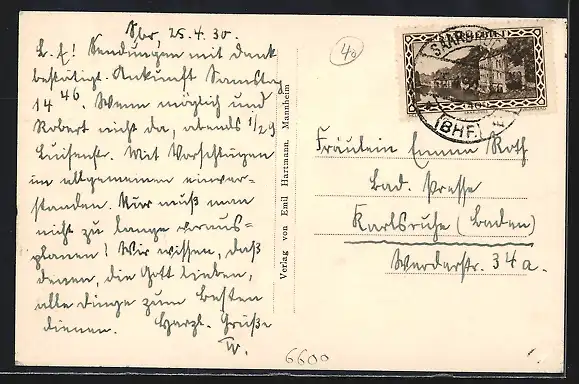 Sbr, 25.4.30.
L. E! Sendungen mit Dank
bestätigt. Ankunft Samstag
14 46. Wenn möglich und
Robert nicht da, abends 1/29
Luisenstr. Mit Vorschlägen
im allgemeinen einver-
standen. Nur muß man
nicht zu lange voraus-
planen! Wir wissen, daß
denen, die Gott lieben,
alle Dinge zum Besten
dienen. Herzl. Grüße
W.
Verlag von Emil Hartmann, Mannheim
40
SAARBR
(BHF.)
Fräulein Emma Roth
Bad. Presse
Karlsruhe (Baden)
Werderstr. 34a.
6600